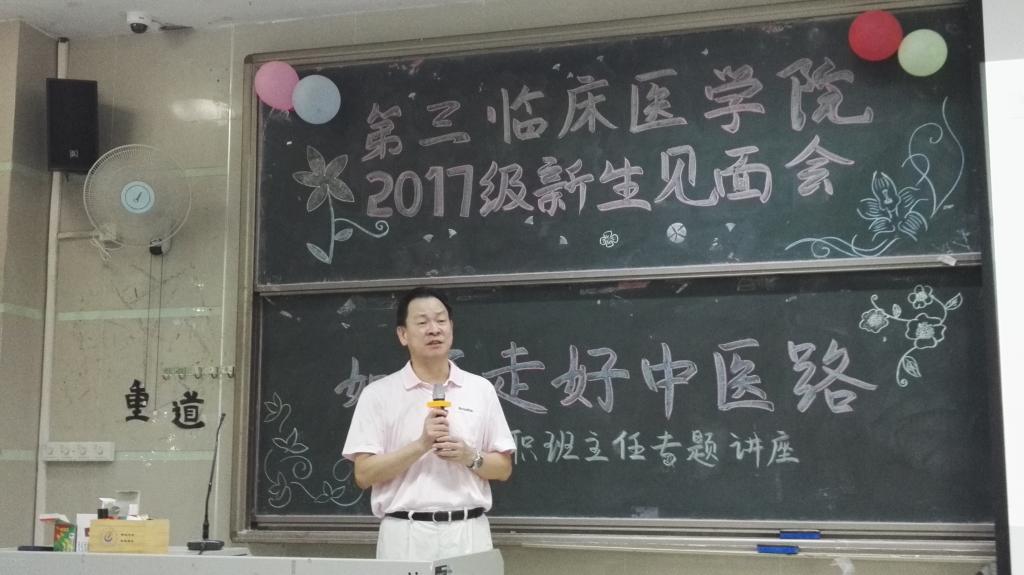 第三临床医学院
2017级新生见面会
如 走好中医路
职班主任专题讲座
重道